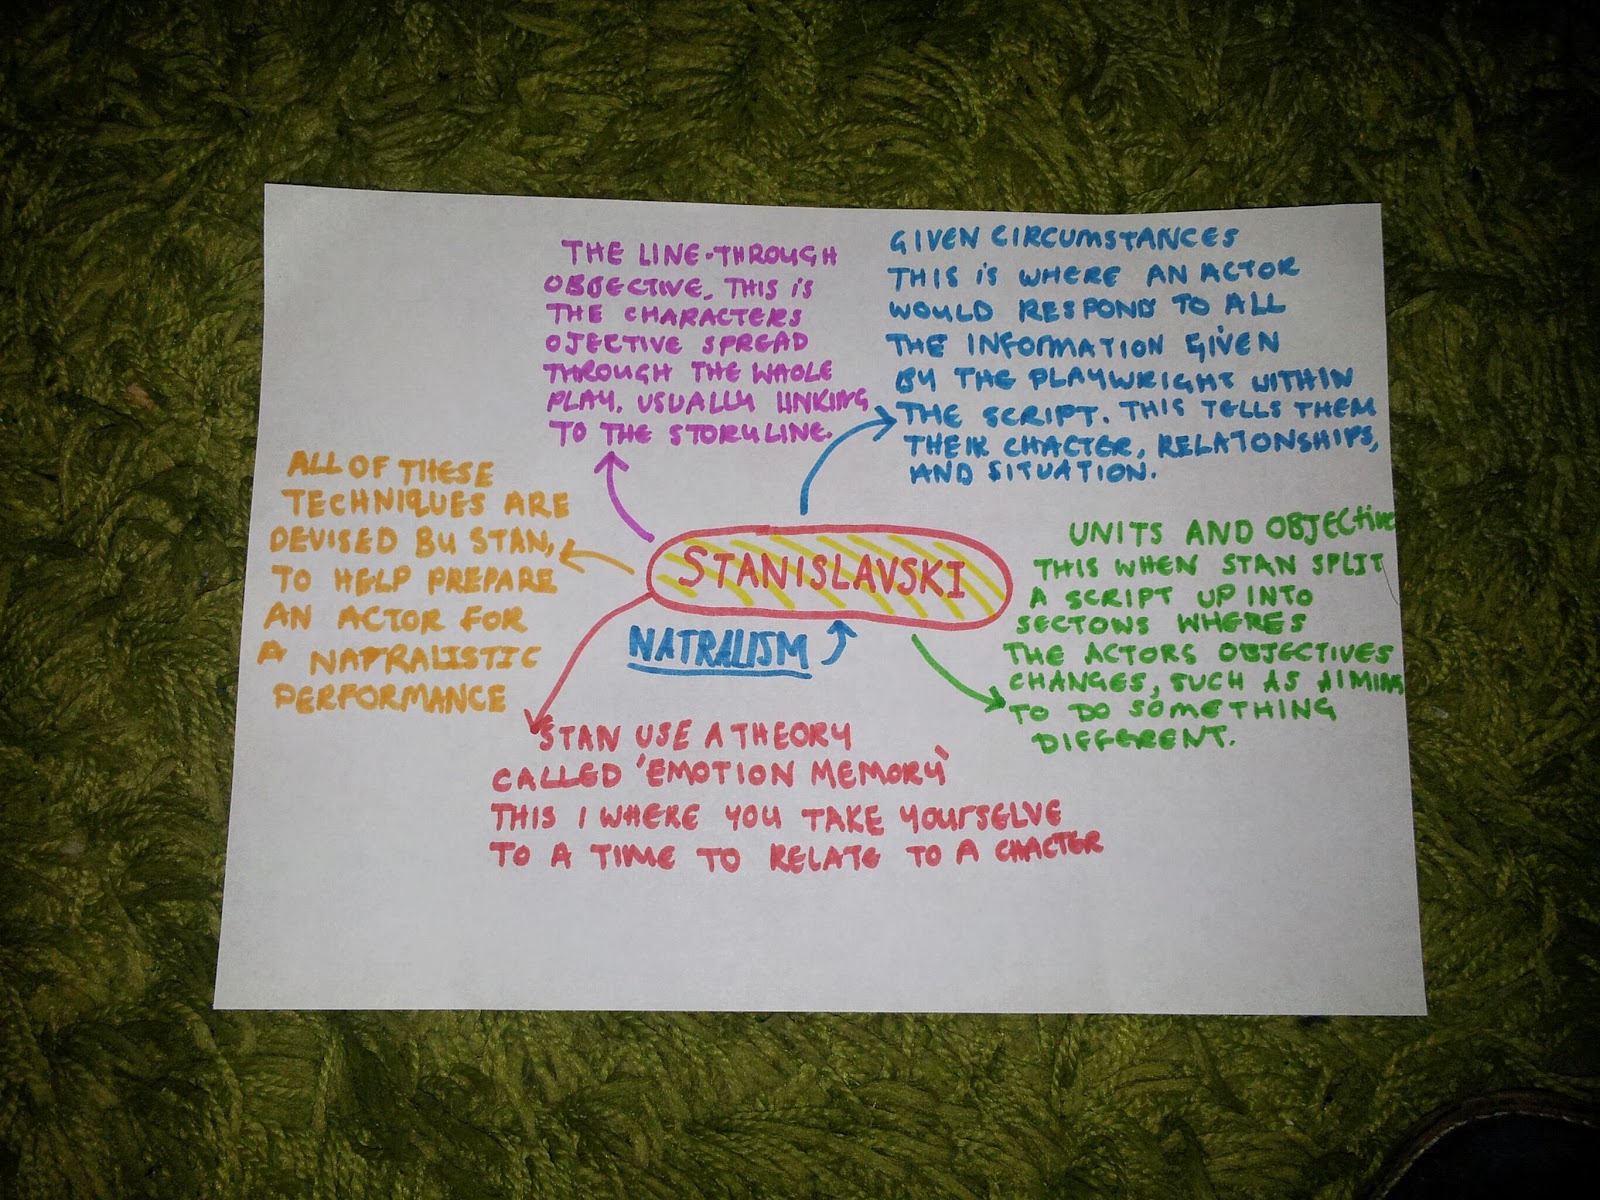 THE LINE-THROUGH
OBJECTIVE, THIS IS
THE CHARACTERS
OJECTIVE SPREAD
THROUGH THE WHOLE
PLAY. USUALLY LINKING
TO THE STORYLINE.
GIVEN CIRCUMSTANCES
THIS IS WHERE AN ACTOR
WOULD RESPOND TO ALL
THE INFORMATION GIVEN
BY THE PLAYWRIGHT WITHIN
THE SCRIPT. THIS TELLS THEM
THEIR CHACTER, RELATONSHIPS,
AND SITUATION.
ALL OF THESE
TECHNIQUES ARE
DEVISED BY STAN,
TO HELP PREPARE
AN ACTOR FOR
A NATRALISTIC
PERFORMANCE
STANISLAVSKI
NATRALISM
UNITS AND OBJECTIVE
THIS WHEN STAN SPLIT
A SCRIPT UP INTO
SECTONS WHERES
THE ACTORS OBJECTIVES
CHANGES, SUCH AS AIMING
TO DO SOMETHING
DIFFERENT.
STAN USE A THEORY
CALLED 'EMOTION MEMORY'
THIS I WHERE YOU TAKE YOURSELVE
TO A TIME TO RELATE TO A CHACTER